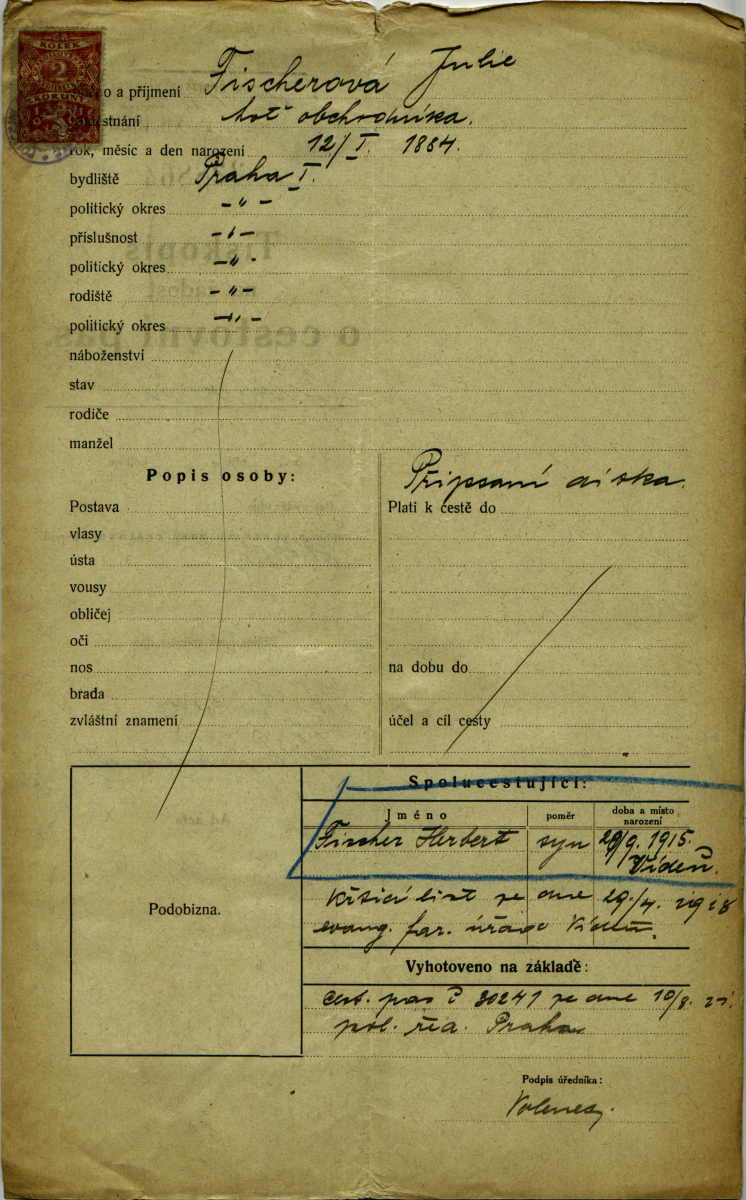 KOLEK
2
KORUNY
Jméno a příjmení Fischerová Julie
zaměstnání choť obchodníka.
rok, měsíc a den narození 12/I. 1884.
bydliště Praha I.
politický okres -"-
příslušnost -"-
politický okres -"-
rodiště -"-
politický okres -"-
náboženství
stav
rodiče
manžel
Popis osoby:
Postava
vlasy
ústa
vousy
obličej
oči
nos
brada
zvláštní znamení
Připsaní dítka.
Platí k cestě do
na dobu do
účel a cíl cesty
Podobizna.
Spolucestující:
Jméno poměr doba a místo narození
Fischer Herbert syn 29/9. 1915.
Vídeň.
Křticí list ze dne 29./4. 1918
evang. far. úřadu Vídeň.
Vyhotoveno na základě:
cest. pas č 30241 ze dne 10/8.
pol. řed. Praha
Podpis úředníka: